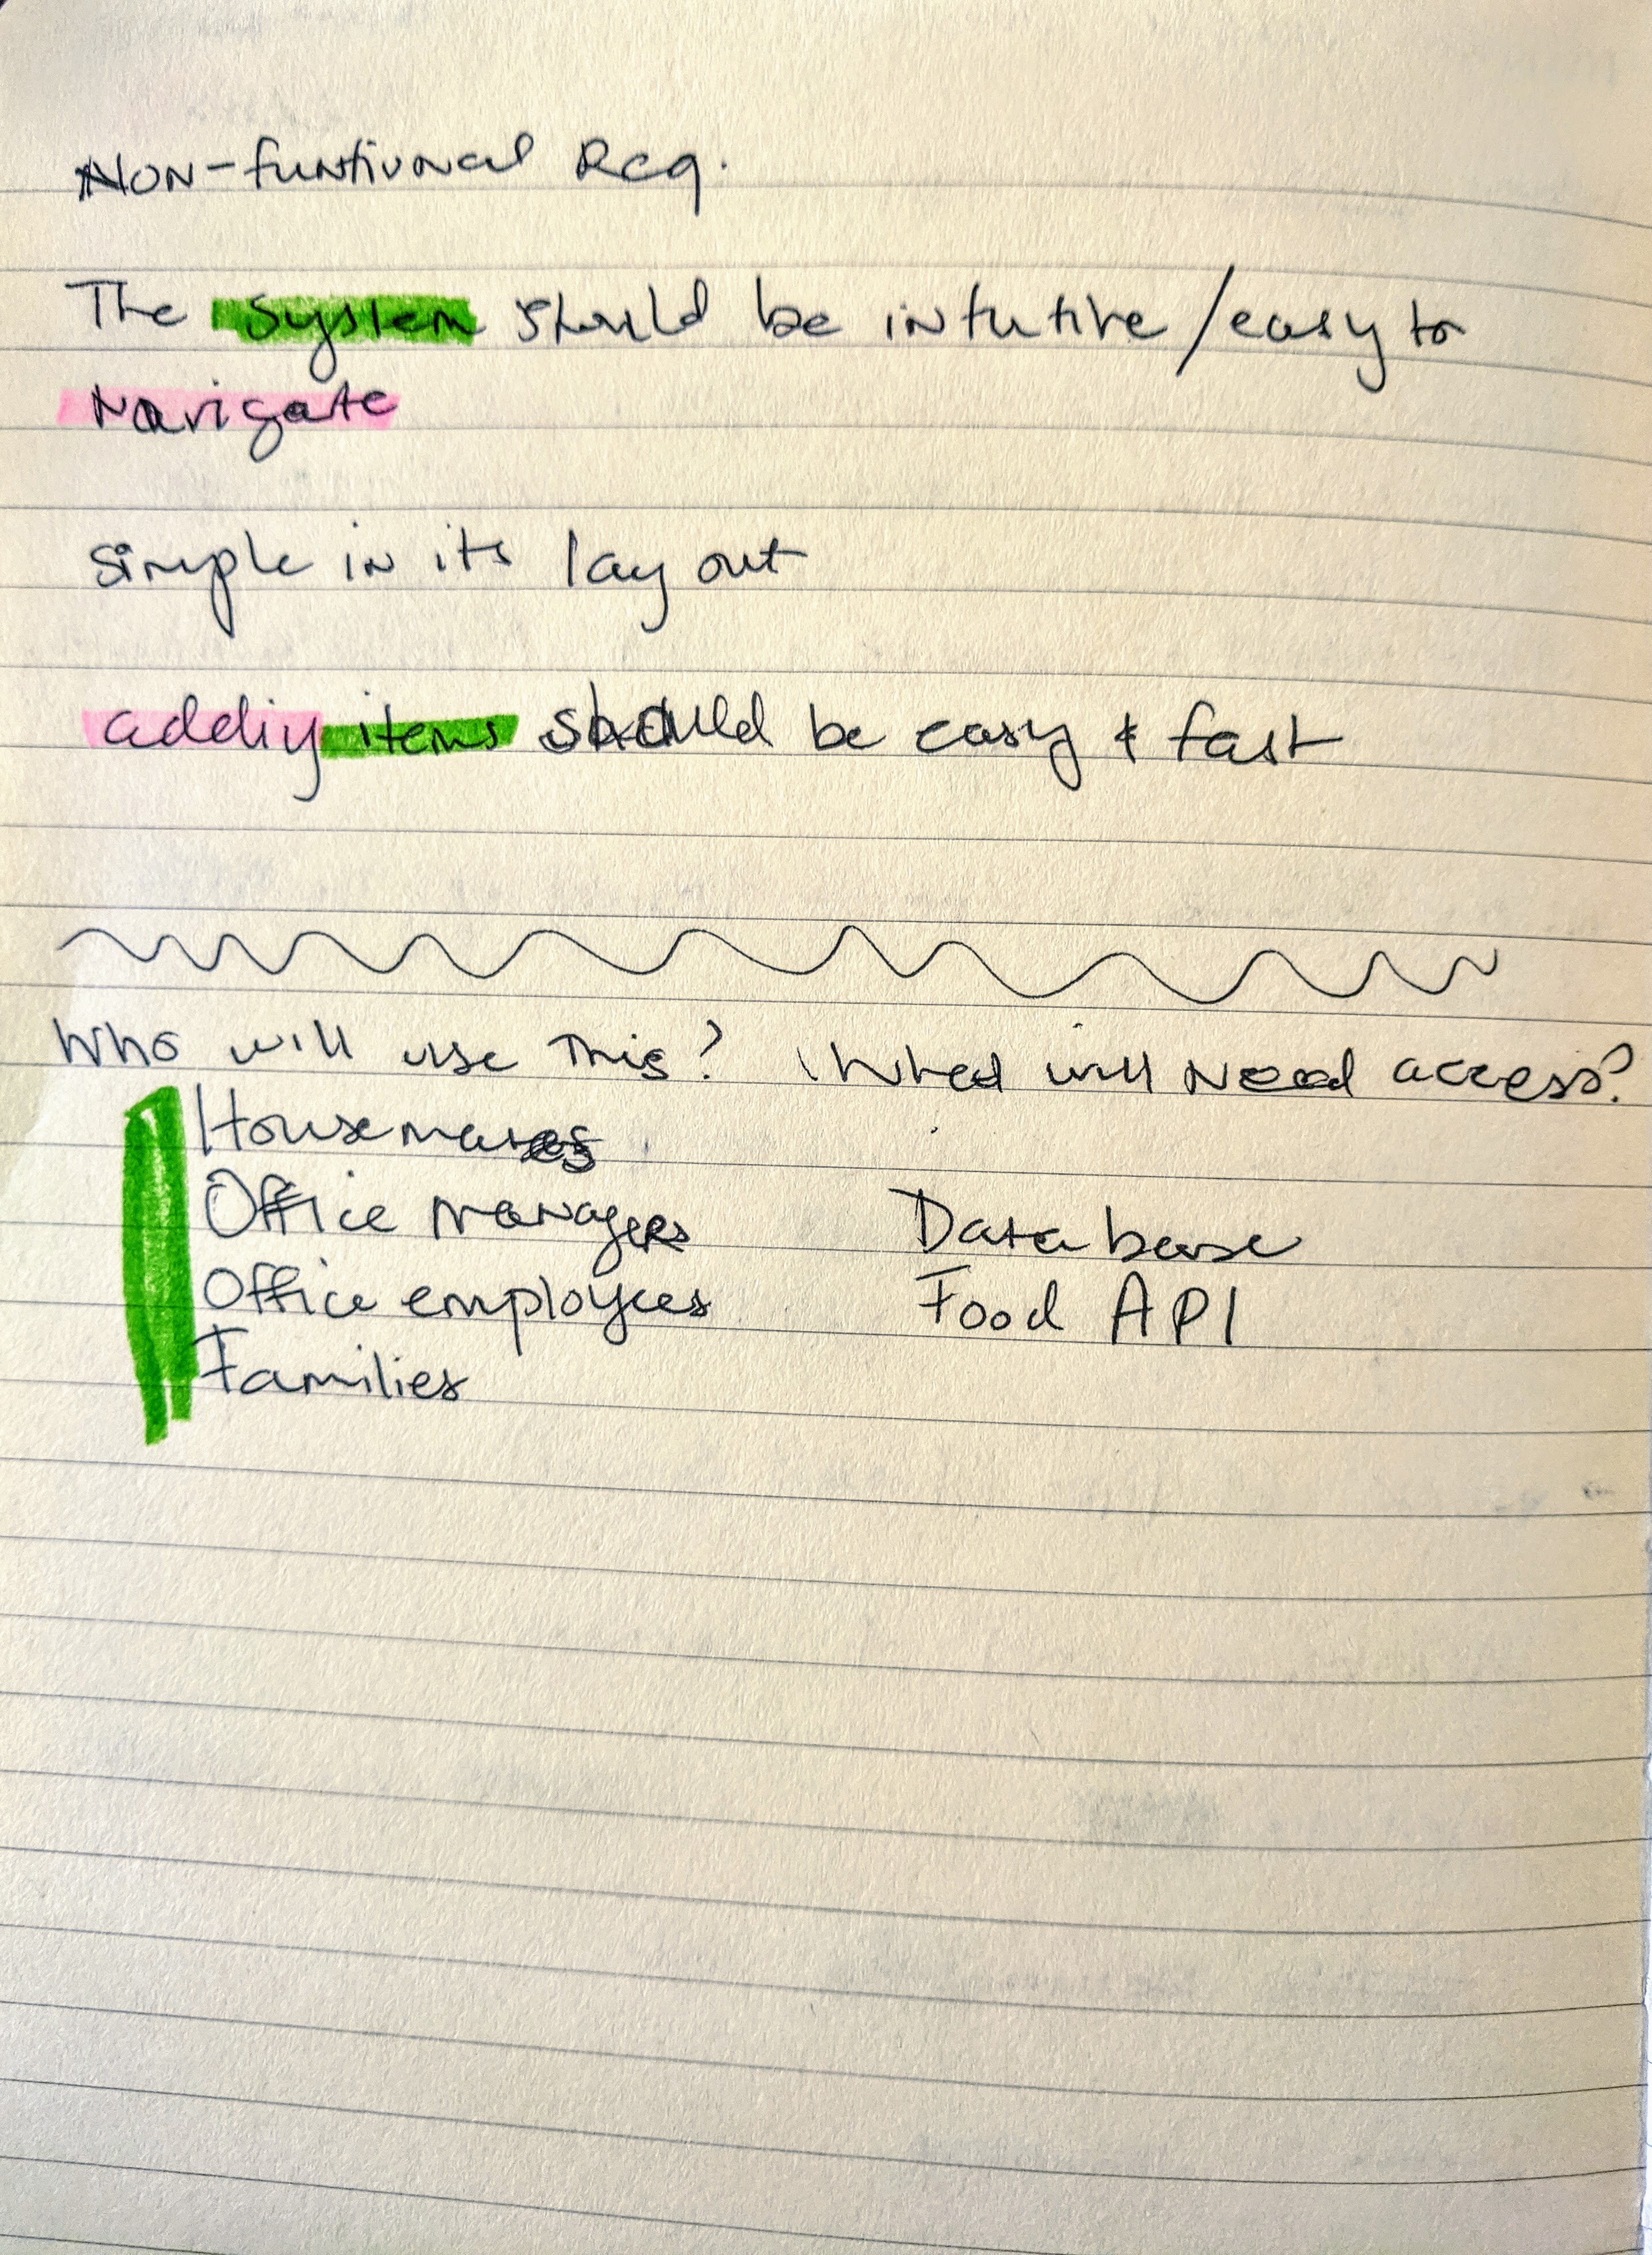 Non-funtional Req.
The system should be intutive/easy to
navigate
simple in its layout
adding items should be easy & fast
Who will use this? What will need access?
Housemates
Office managers
Database
Office employees
Food API
Families